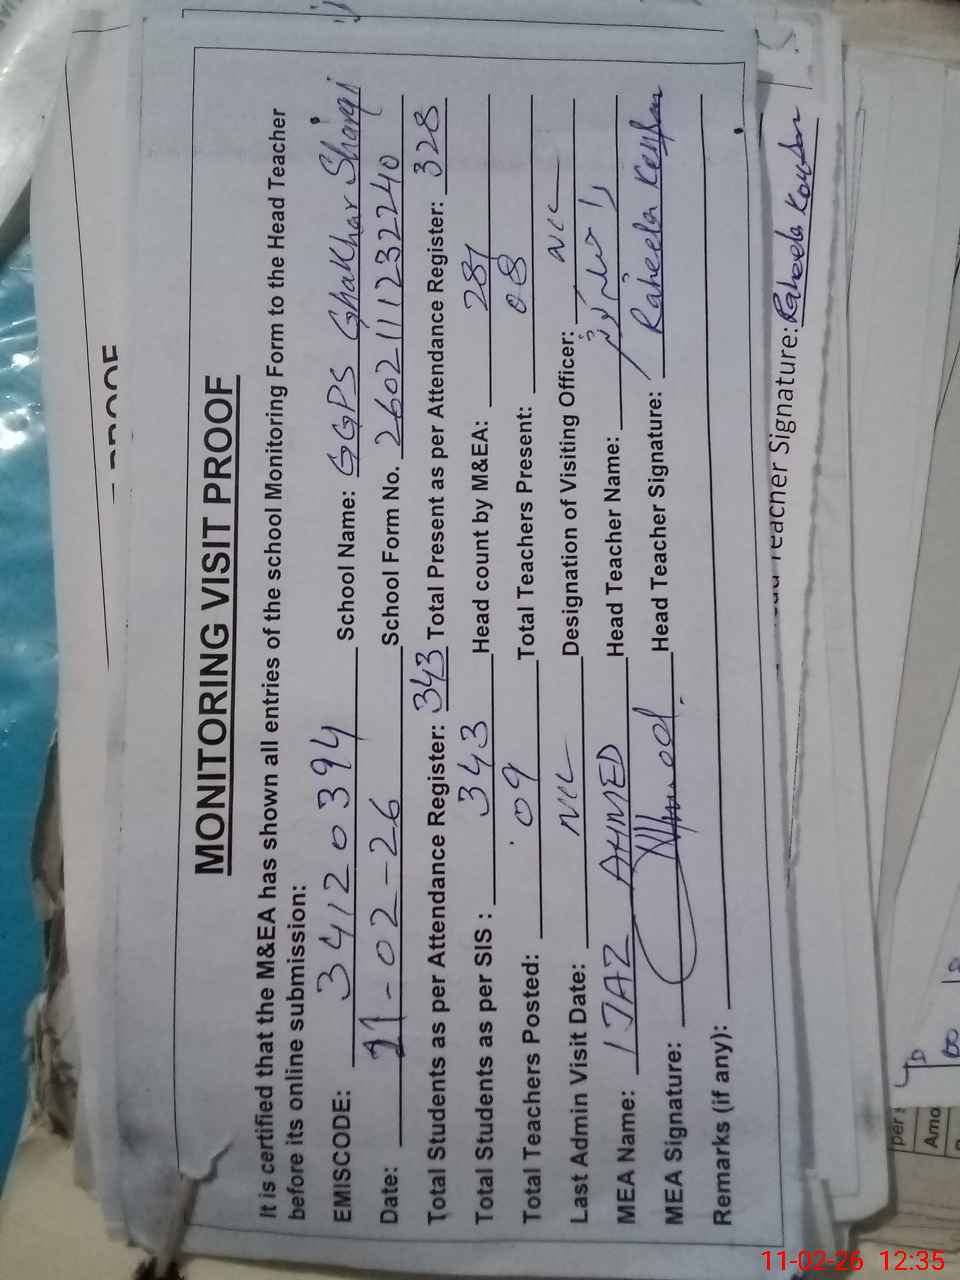 MONITORING VISIT PROOF
It is certified that the M&EA has shown all entries of the school Monitoring Form to the Head Teacher
before its online submission:
EMISCODE: 34120394 School Name: GGPS Ghakhar Sharqi
Date: 11-02-26 School Form No. 26021111232240
Total Students as per Attendance Register: 343 Total Present as per Attendance Register: 328
Total Students as per SIS : 343 Head count by M&EA: 287
Total Teachers Posted: 09 Total Teachers Present: 08
Last Admin Visit Date: Nil Designation of Visiting Officer: Nil
MEA Name: IJAZ AHMED Head Teacher Name:
MEA Signature: Head Teacher Signature: Raheela Kousar
Remarks (if any):
Teacher Signature: Raheela Kousar
per
Amo
11-02-26 12:35